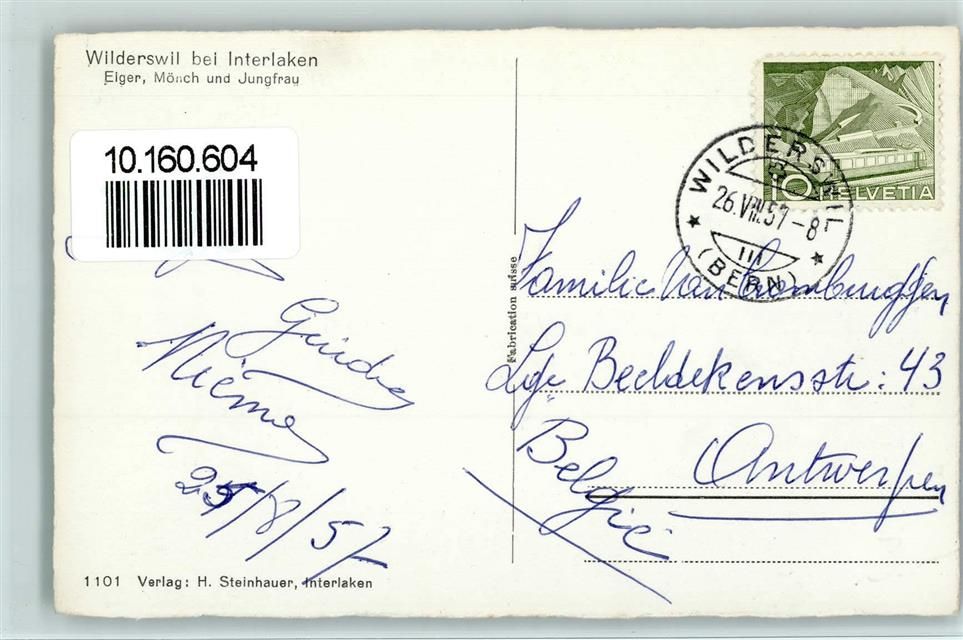 Wilderswil bei Interlaken
Eiger, Mönch und Jungfrau
10.160.604
10 HELVETIA
WILDERSWIL
26.VIII.57-8
III
(BERN)
Fabrication suisse
Familie Van
Lge Beeldekensstr: 43
Antwerpen
België
25/8/57
1101 Verlag: H. Steinhauer, Interlaken